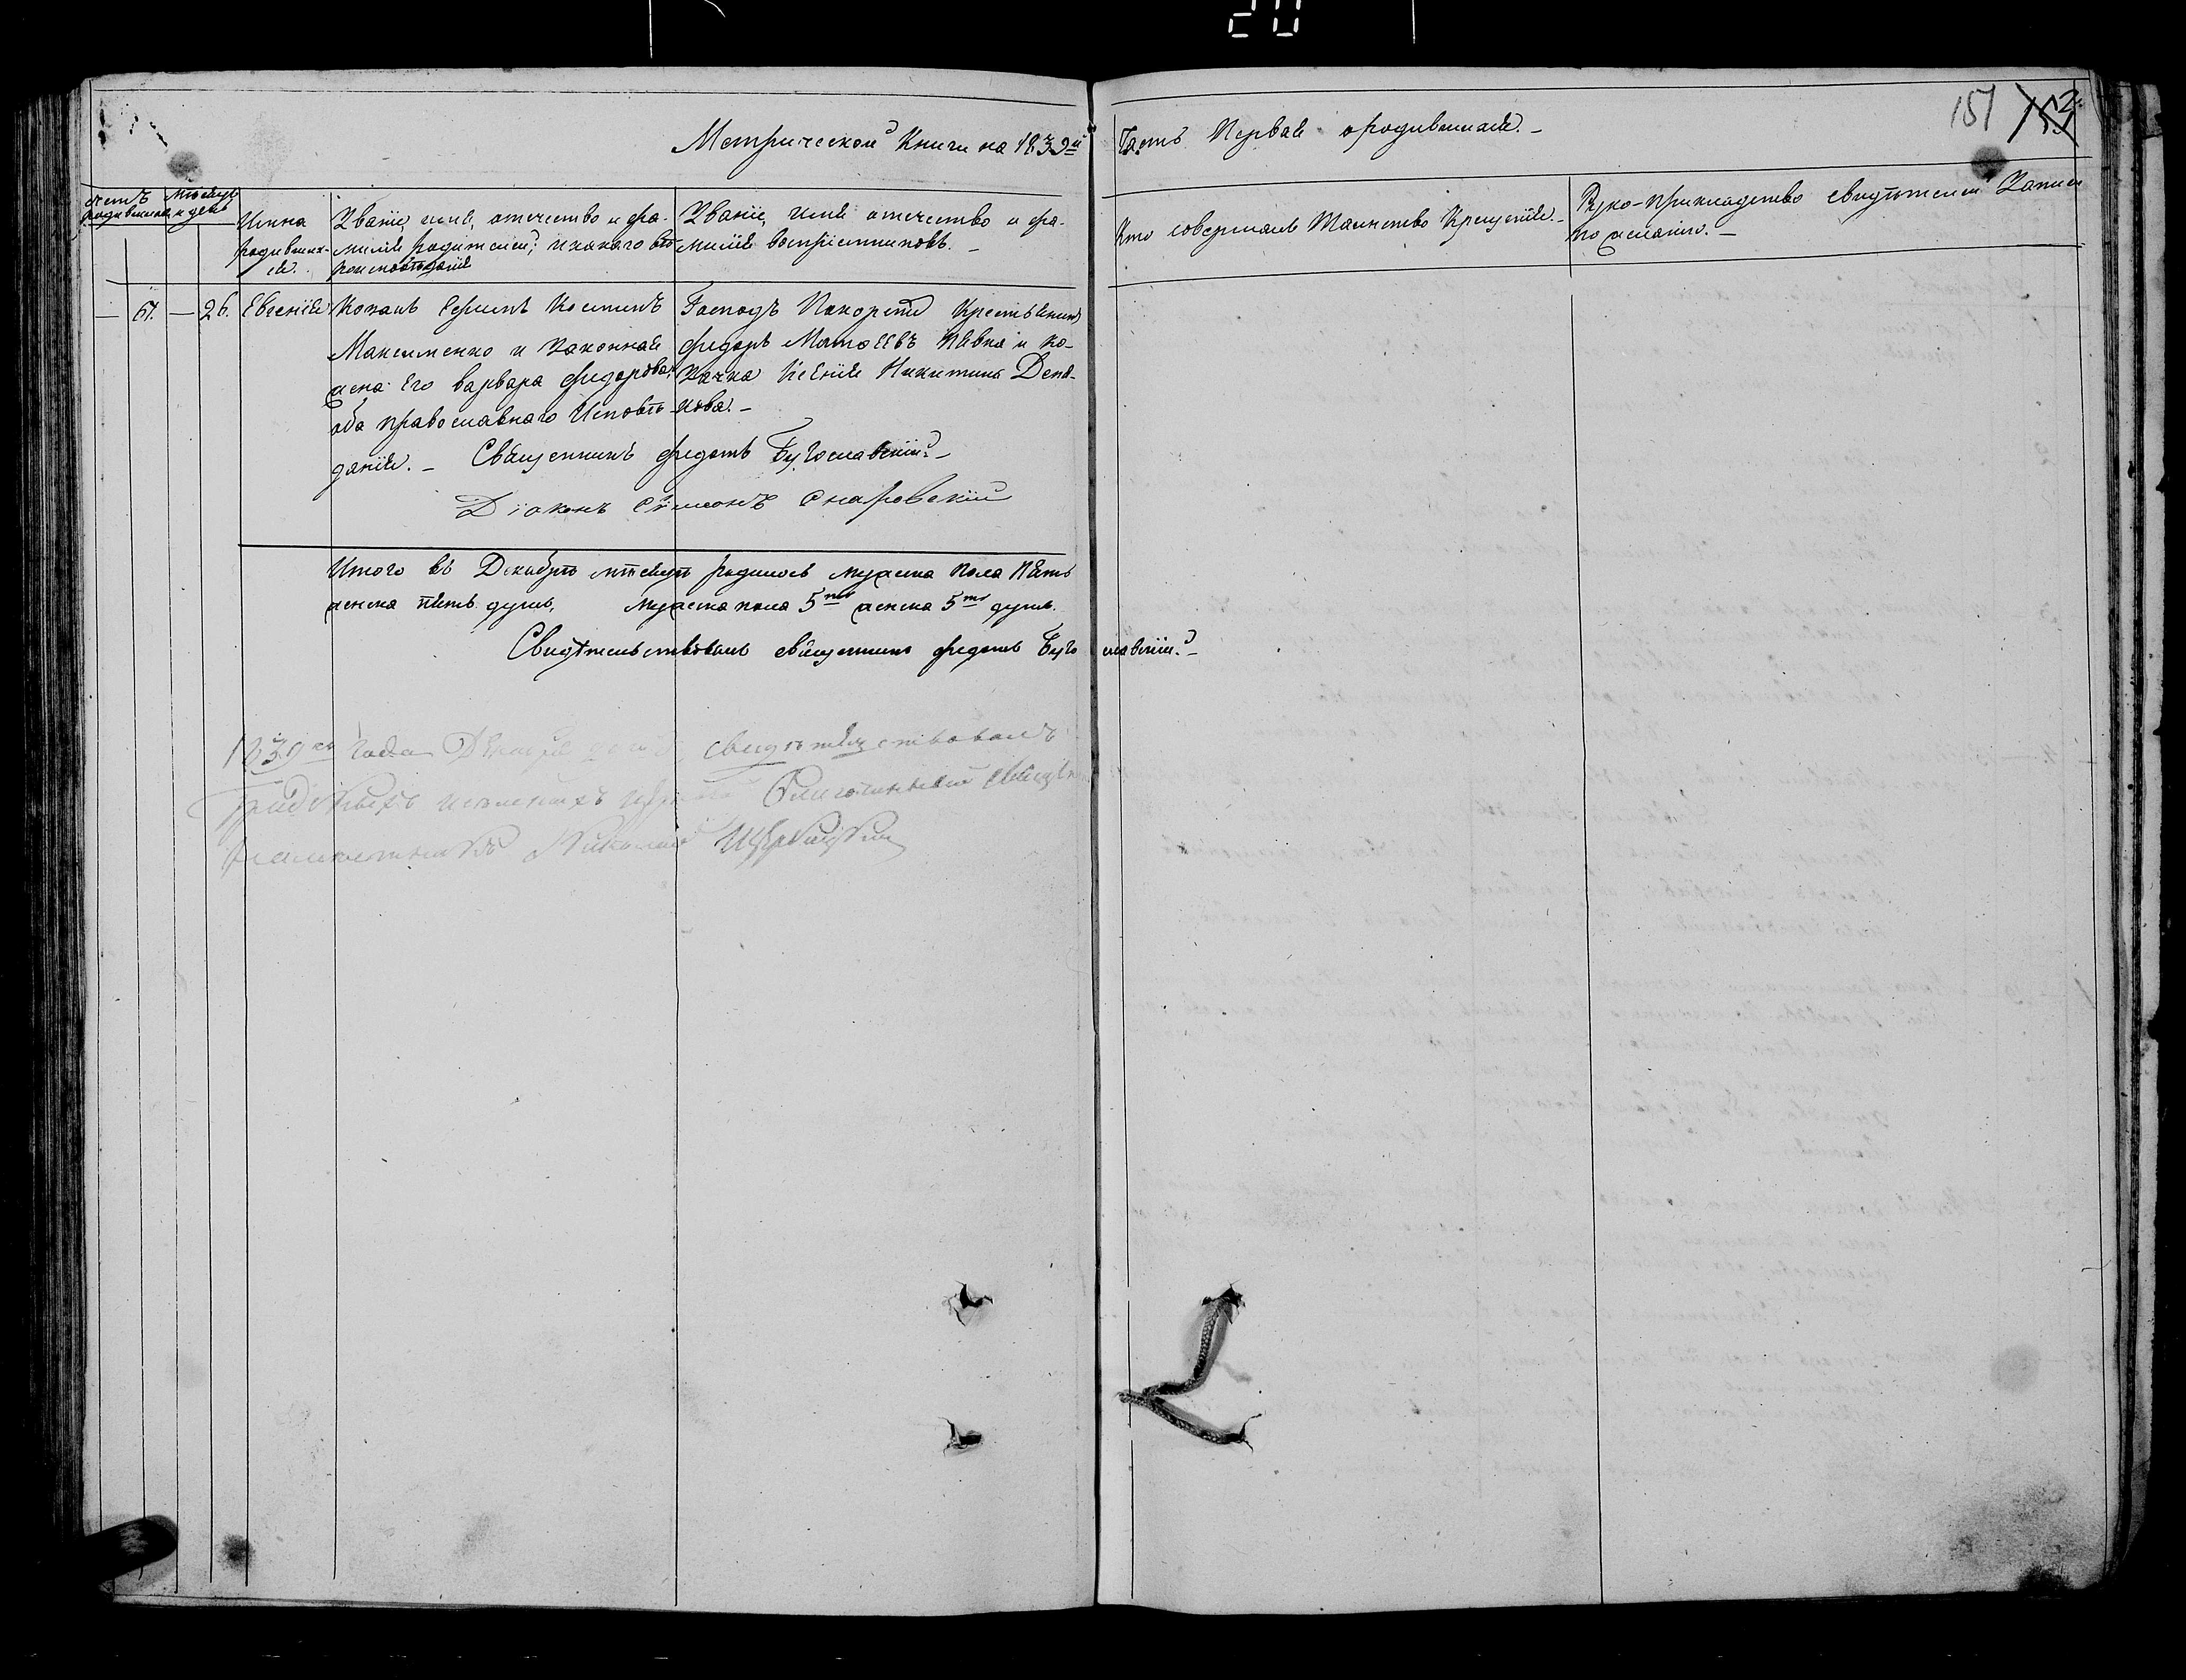 20
151 152
Метрической Книги на 1839й Часть Первая о родившихся. –
Счетъ родившихся
Мѣсяцъ и день
Имена родивших-
ся.
Званіе, имя, отечество и фа-
милія родителей, и какаго вѣ-
роисповѣданія
Званіе, имя отечество и фа-
милія воспріемниковъ. –
Кто совершалъ Таинство Крещенія. –
Руко-прикладство свидѣтелей Записи
по желанію. –
– 67. – 26. Евгенія
Козакъ Ермилъ Костинъ
Максименко и Законная
жена Его Варвара Федорова,
оба православнаго Исповѣ-
данія. –
Господъ Кресткянинъ
Федоръ Матѳеевъ Пѣвна и ко-
зачка Ксенія Никитина
кова. –
Священникъ Федотъ Бугославскій. –
Діаконъ Сѵмеонъ Снаровскій
Итого въ Декабрѣ мѣсяцѣ родилось мужеска пола пять
женска пять душъ, мужеска пола 5ть женска 5ть душъ.
Свидѣтельствовалъ священникъ Федотъ Бугославскій. –
1839го года Декабря дня свидѣтельствовалъ
Благочинный
Николай